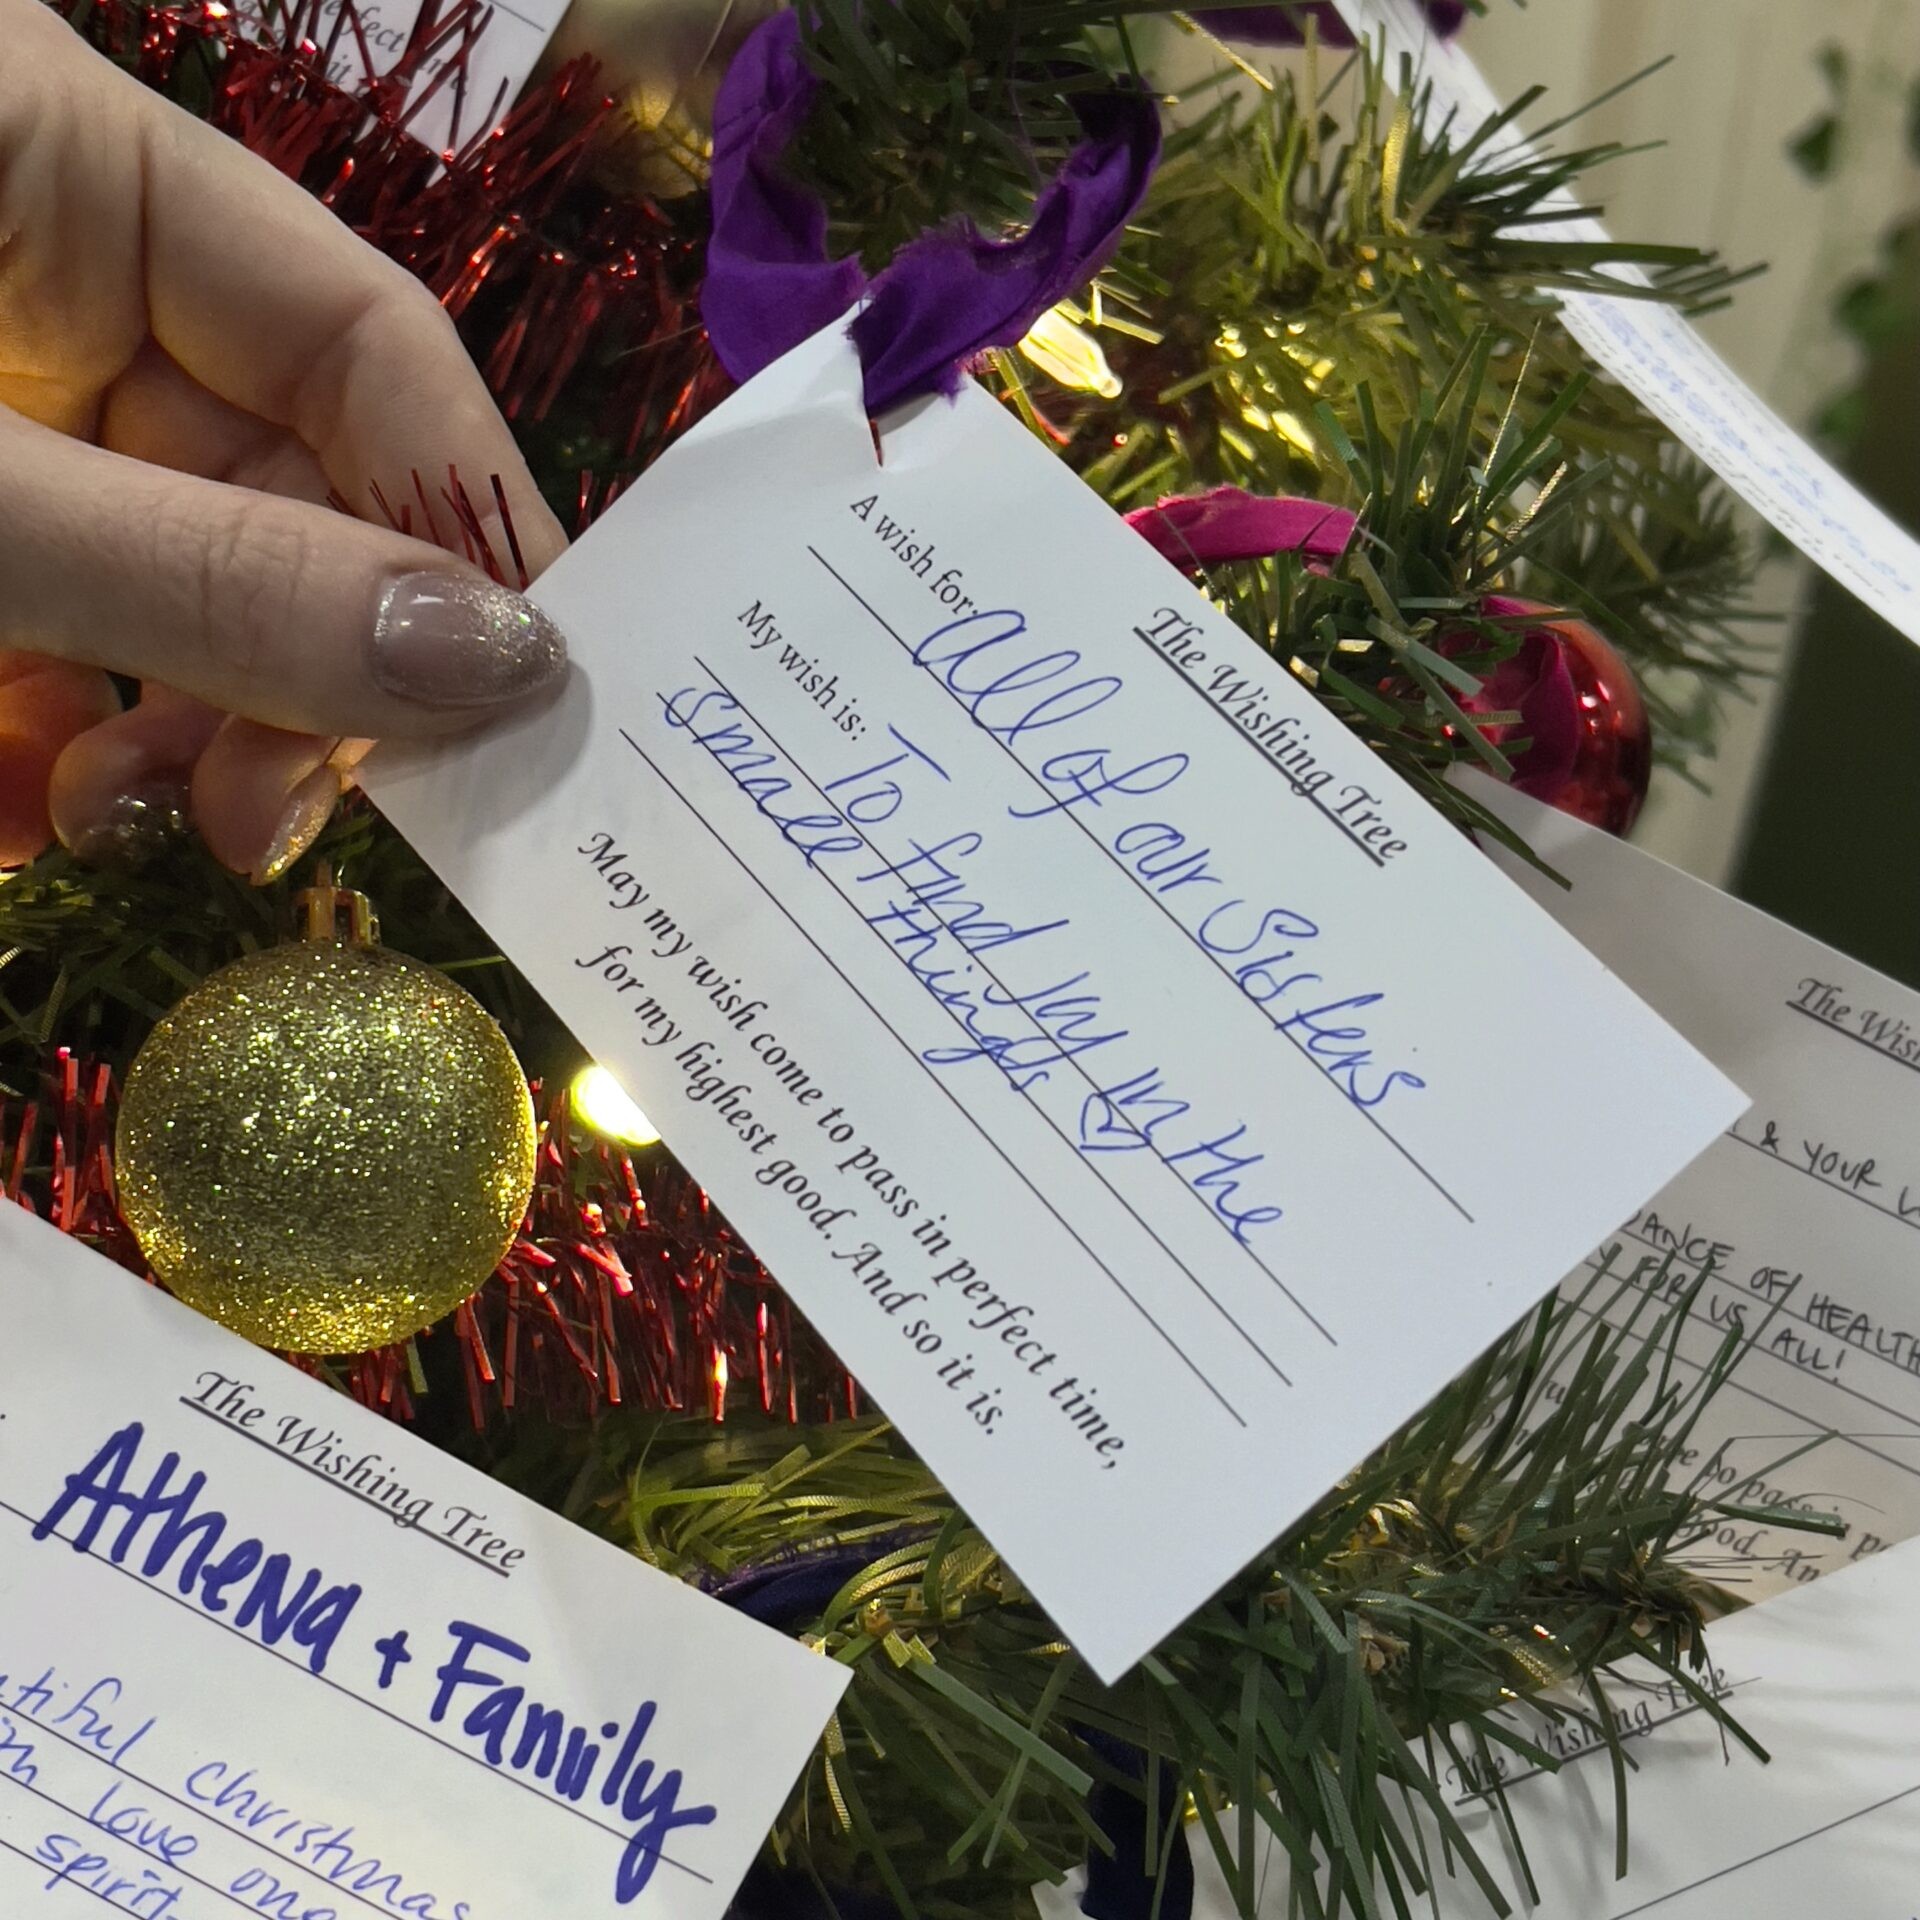 The Wishing Tree
A wish for: All of our Sisters
My wish is: To find joy in the
small things
May my wish come to pass in perfect time,
for my highest good. And so it is.
The Wishing Tree
Athena + Family
Christmas
love one
spirit
The Wish
& YOUR
OF HEALTH
FOR US ALL!
to pass in
good. An
The Wishing Tree